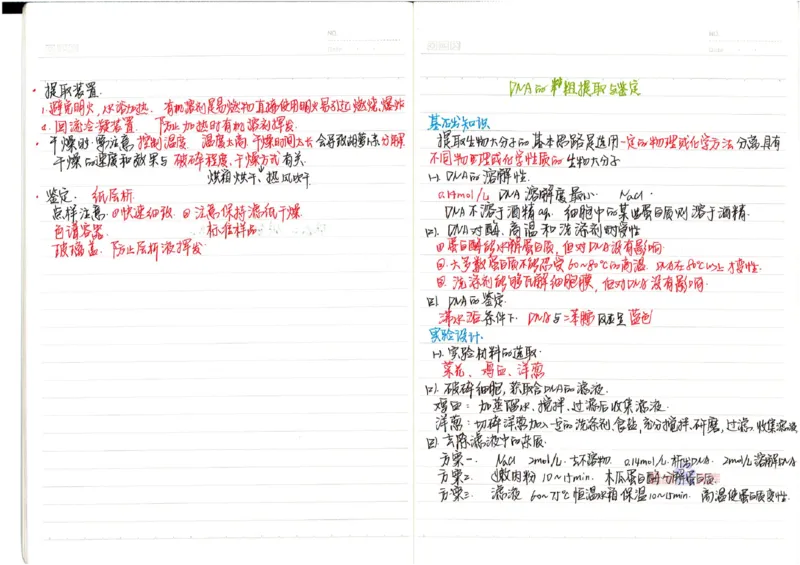 NO.
· 提取装置.
1. 避免明火,水浴加热. 有机溶剂是易燃物直接使用明火易引起燃烧、爆炸
2. 回流冷凝装置. 防止加热时有机溶剂挥发.
· 干燥时要注意控制温度 温度太高、干燥时间太长会导致胡萝卜素分解
干燥的速度和效果与破碎程度、干燥方式有关.
烘箱烘干、热风吹干
· 鉴定. 纸层析.
点样注意 ①快速细致 ②注意保持滤纸干燥
色谱容器 标准样品
玻璃盖. 防止层析液挥发.
NO.
DNA的粗提取与鉴定
基础知识
提取生物大分子的基本思路是选用一定的物理或化学方法分离具有
不同物理或化学性质的生物大分子
(一). DNA的溶解性.
0.14mol/L DNA溶解度最小 NaCl.
DNA不溶于酒精 细胞中的某些蛋白质则溶于酒精.
(二). DNA对酶、高温和洗涤剂的耐受性
①蛋白酶能水解蛋白质,但对DNA没有影响.
②大多数蛋白质不能忍受60~80℃的高温. DNA在80℃以上才变性.
③洗涤剂能够瓦解细胞膜,但对DNA没有影响.
(三) DNA的鉴定.
沸水浴条件下. DNA与二苯胺反应呈蓝色
实验设计.
(一). 实验材料的选取.
菜花、鸡血、洋葱
(二). 破碎细胞,获取含DNA的滤液.
鸡血:加蒸馏水、搅拌、过滤后收集滤液.
洋葱:切碎洋葱加入一定的洗涤剂、食盐,充分搅拌、研磨,过滤、收集滤液
(三). 去除滤液中的杂质.
方案一. NaCl 2mol/L.去不溶物. 0.14mol/L.析出DNA. 2mol/L溶解DNA
方案二. 嫩肉粉 10~15min. 木瓜蛋白酶分解蛋白质.
方案三. 滤液 60~75℃恒温水箱保温10~15min. 高温使蛋白质变性.